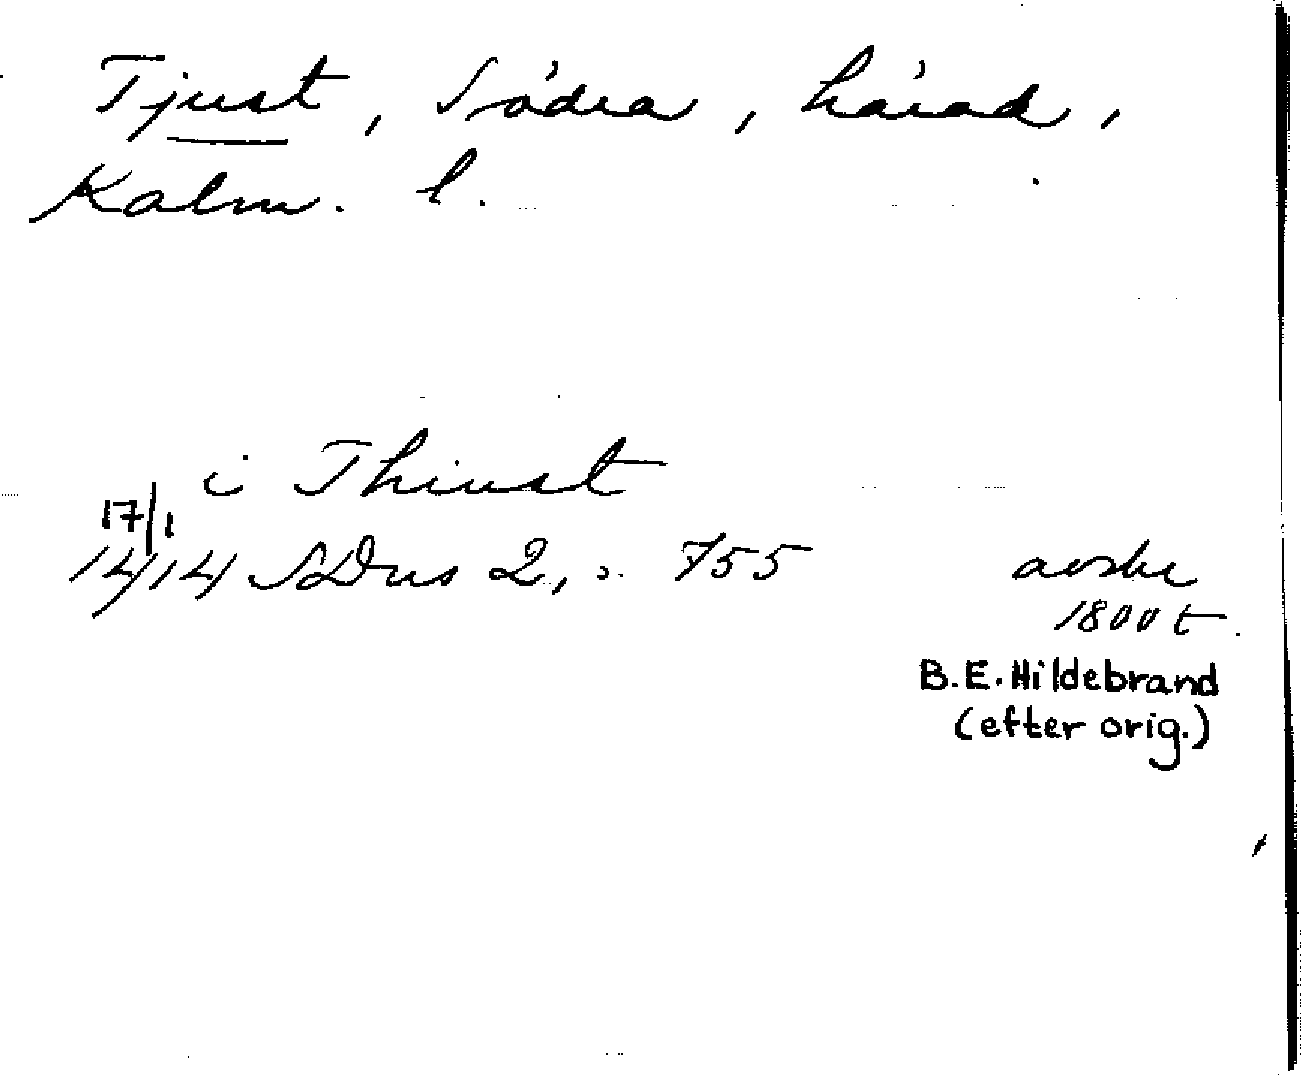 Tjust, Södra, härad,
Kalm. l.
i Thiust
17/1
1414 SDns 2, s. 755 avskr
1800 t.
B.E. Hildebrand
(efter orig.)